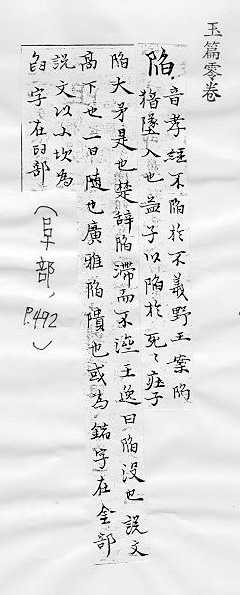 玉篇零卷
陷音孝經不陷於不義野王案陷
猶墜入也孟子以陷於死〻莊子
陷大矛是也楚辭陷滯而不濟王逸曰陷没也說文
高下也一曰隨也廣雅陷隤也或為錎字在金部
說文以小坎為
臽字在臼部
(阜部,
P.492)